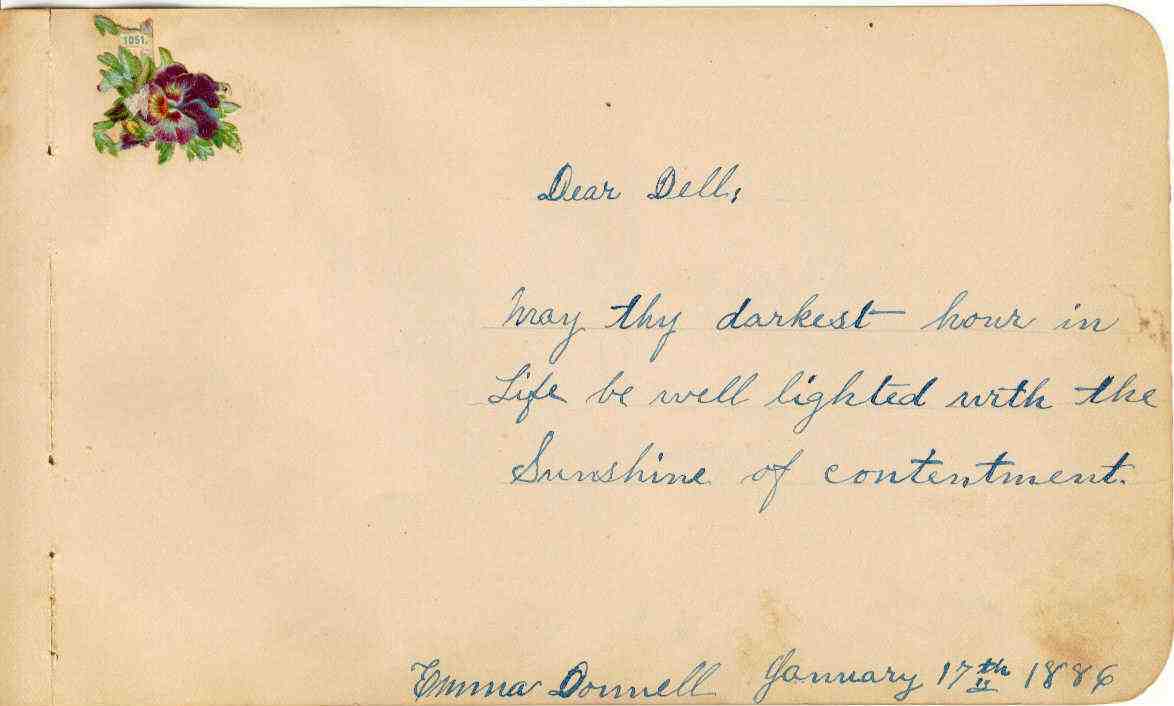 1051.
Dear Dell,
May thy darkest hour in
Life be well lighted with the
Sunshine of contentment.
Emma Donnell January 17th 1886